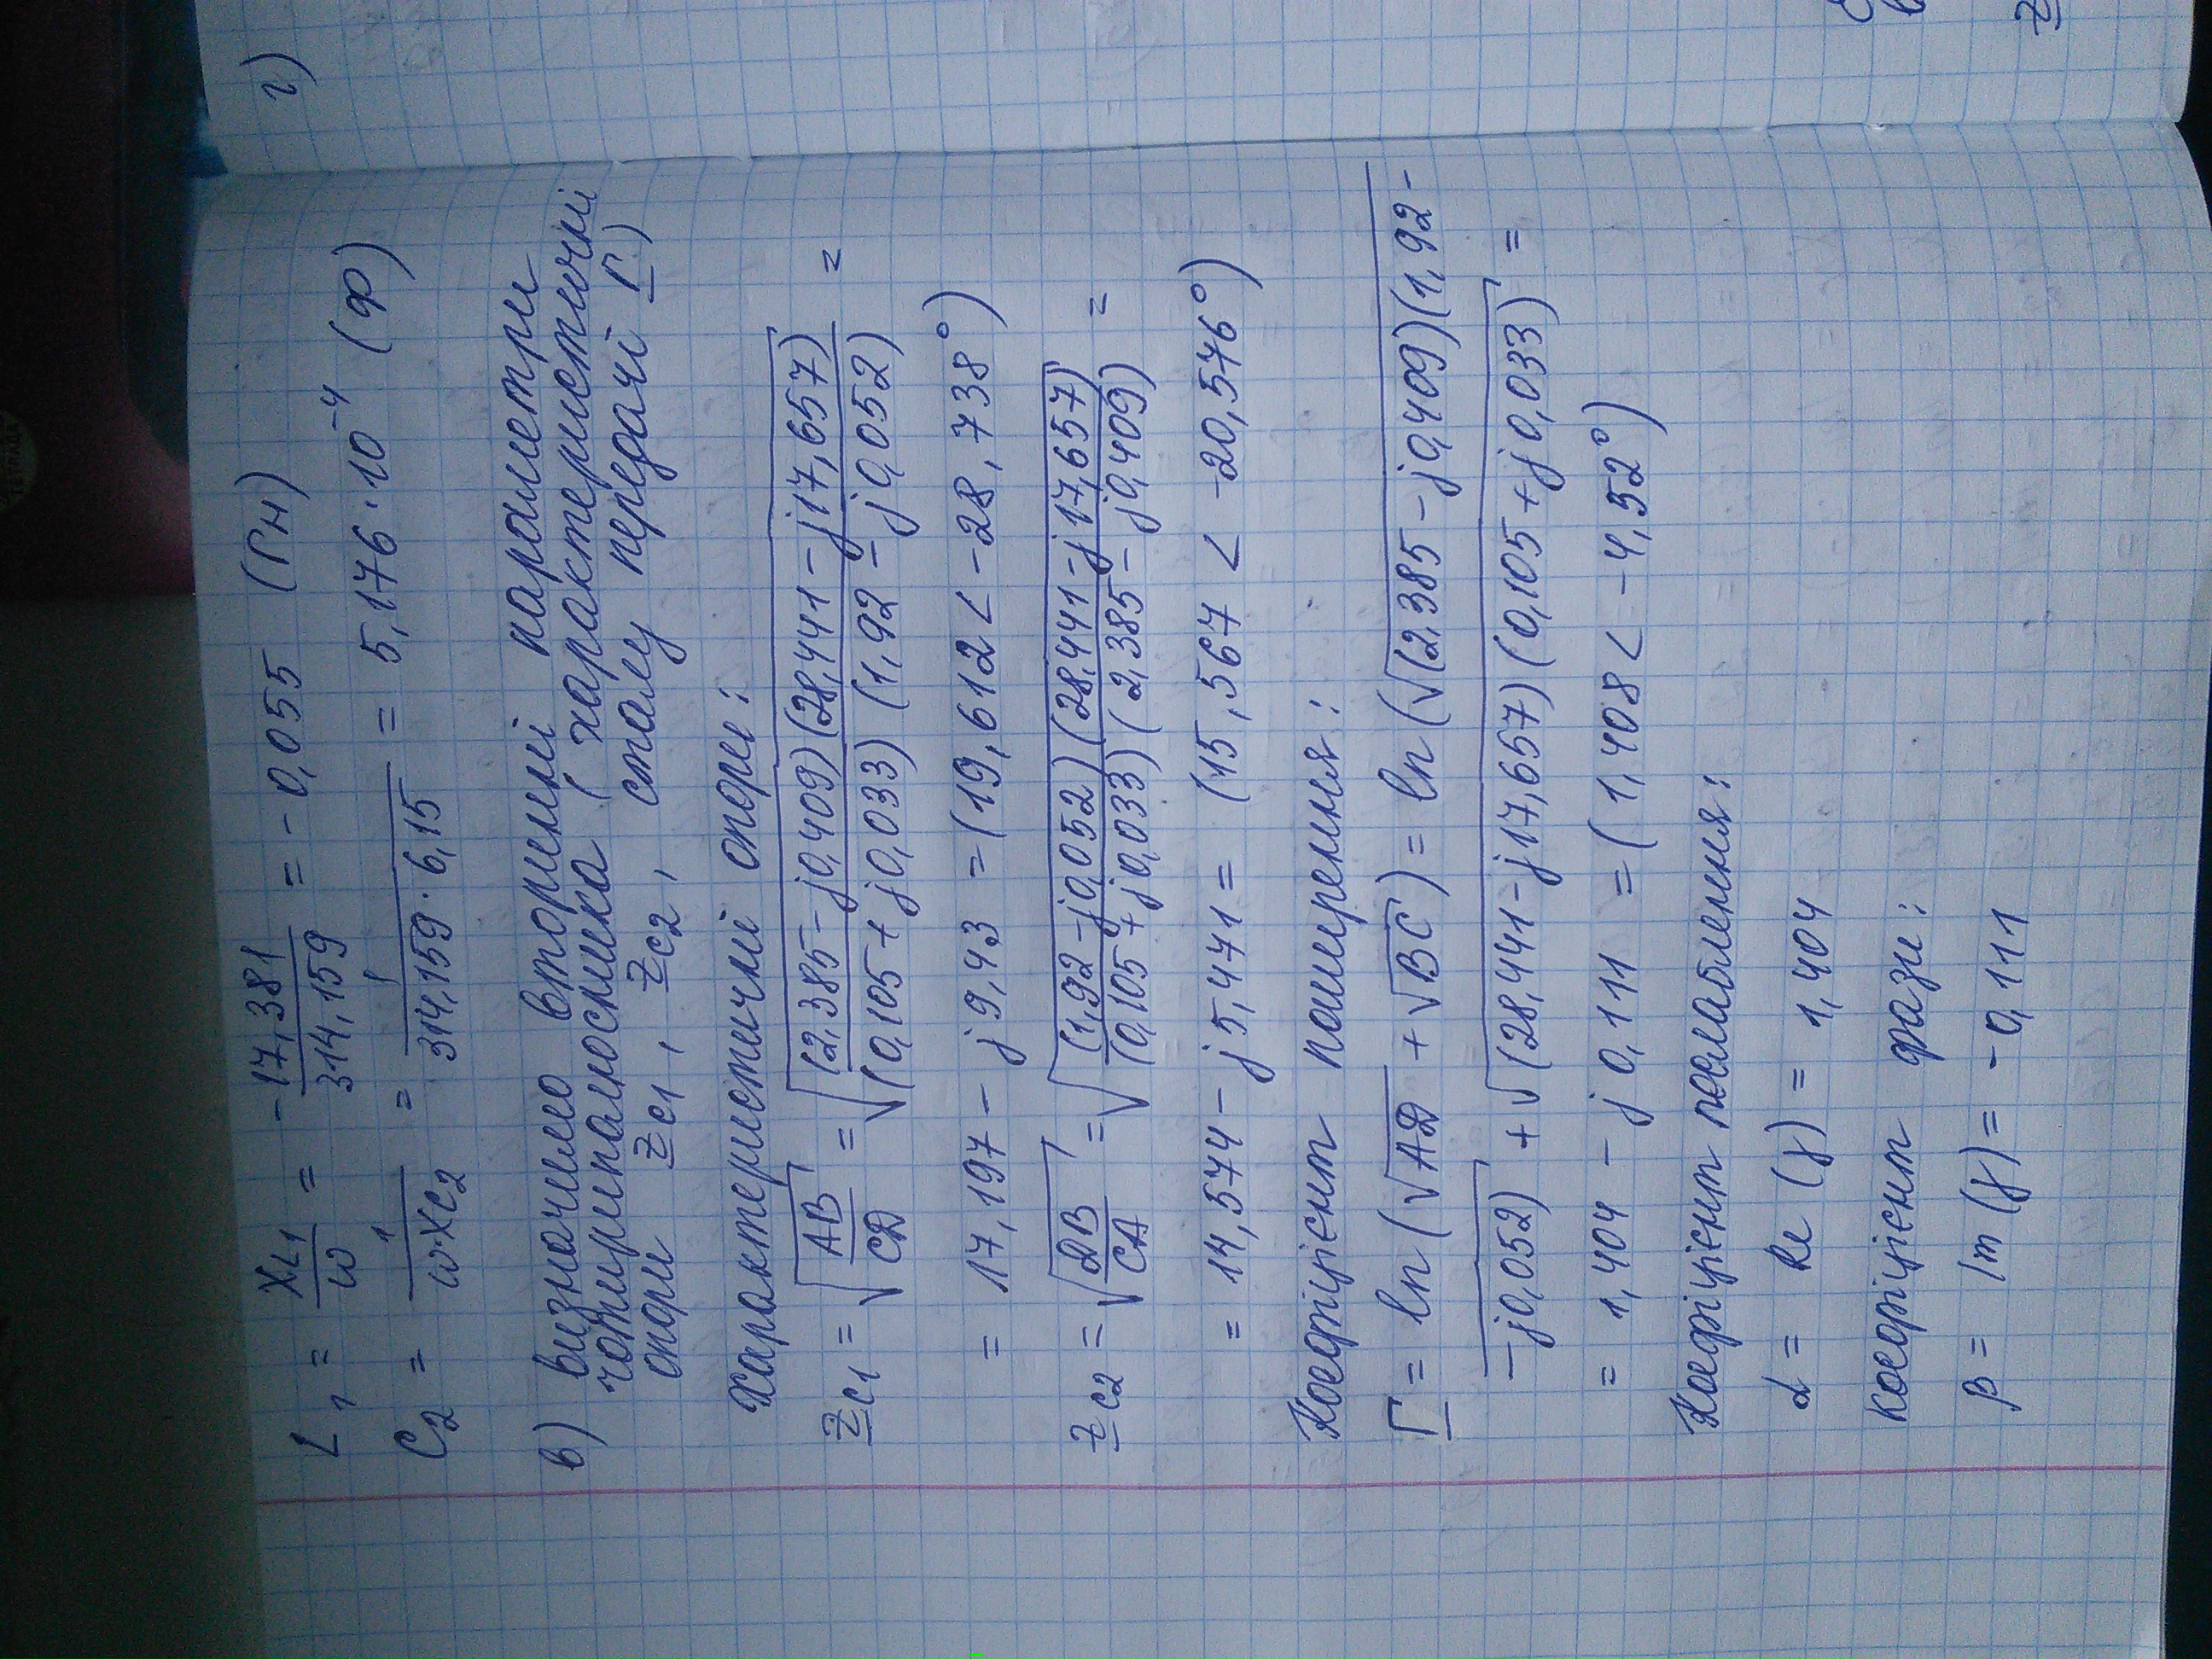 L₁ = X_L1/ω = -17,381/314,159 = -0,055 (Гн)
C₂ = 1/(ω·Xc₂) = 1/(314,159·6,15) = 5,176·10⁻⁴ (Ф)
в) визначимо вторинні параметри
чотириполюсника (характеристичні
опори Zc1, Zc2, сталу передачі Г)
Характеристичні опори:
Zc1 = √(AB/CD) = √((2,385-j0,409)(28,441-j17,657)/(0,105+j0,033)(1,92-j0,052)) =
= 17,197 - j9,43 = (19,612 < -28,738°)
Zc2 = √(DB/CA) = √((1,92-j0,052)(28,441-j17,657)/(0,105+j0,033)(2,385-j0,409)) =
= 14,574 - j5,471 = (15,567 < -20,576°)
Коефіцієнт поширення:
Г = ln(√AD + √BC) = ln(√(2,385-j0,409)(1,92-
-j0,052) + √(28,441-j17,657)(0,105+j0,033) =
= 1,404 - j0,111 = (1,408 < -4,52°)
Коефіцієнт послаблення:
α = Re(γ) = 1,404
коефіцієнт фази:
β = Im(γ) = -0,111
г)
Z
ТЕТРАДКА